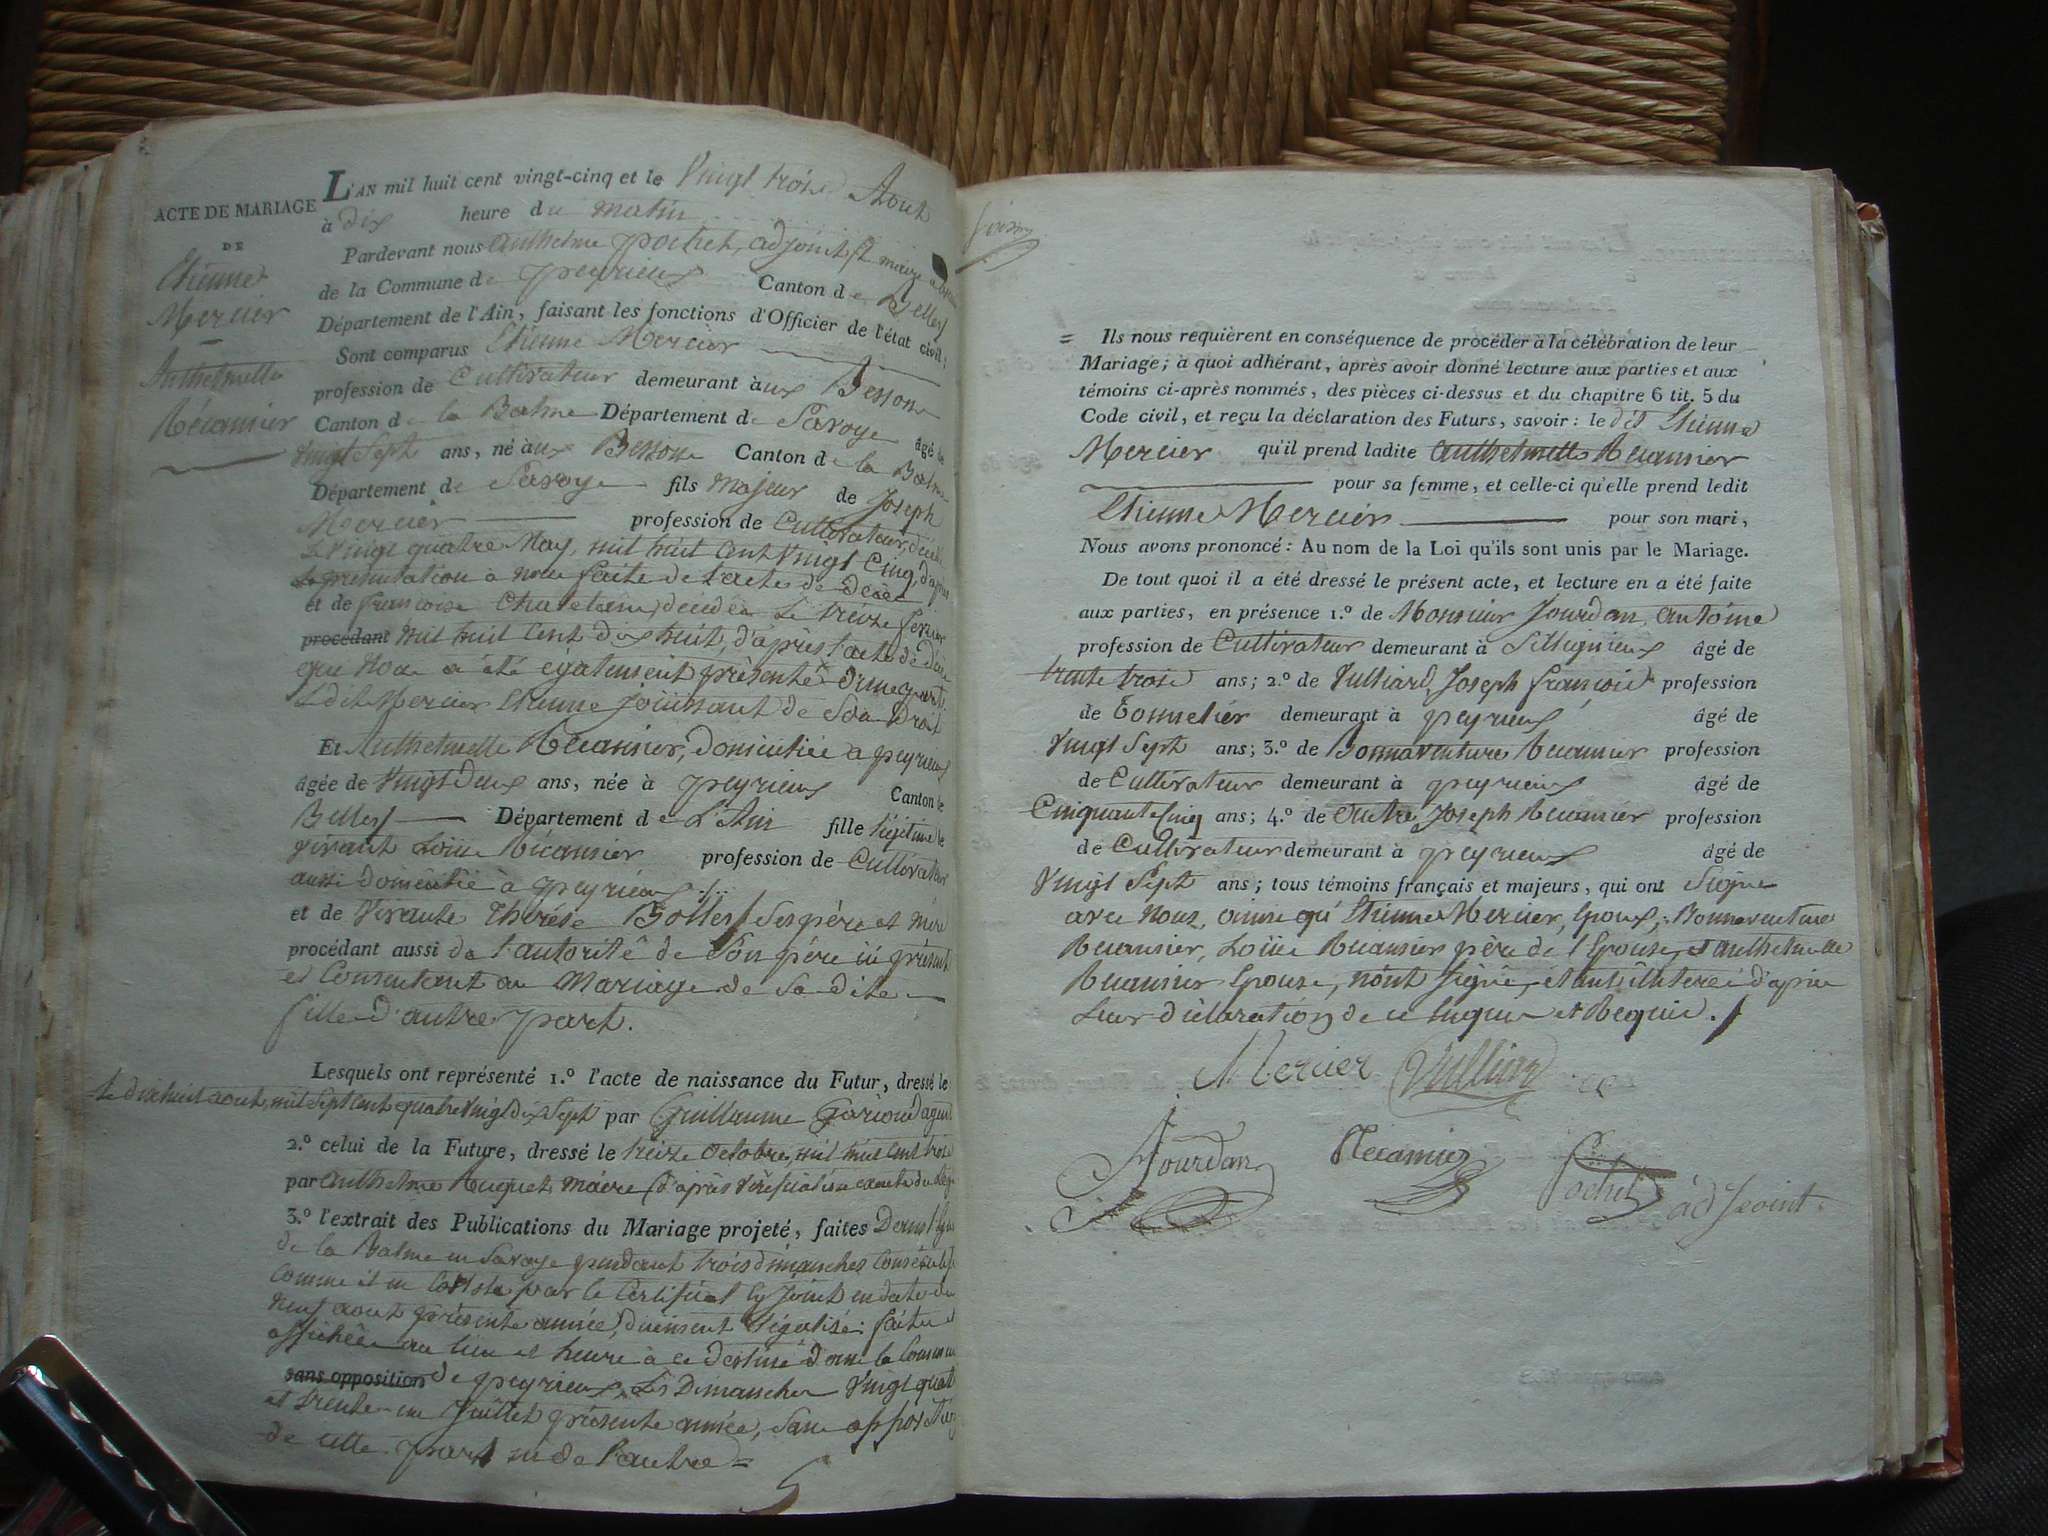 ACTE DE MARIAGE
DE
Etienne
Mercier
Anthelmette
Récamier
L'AN mil huit cent vingt-cinq et le Vingt trois Aout
à dix heure du matin
Pardevant nous Anthelme pochet, adjoint
de la Commune de peyrieux Canton de Belley
Département de l'Ain, faisant les fonctions d'Officier de l'état civil;
Sont comparus Etienne Mercier
profession de Cultivateur demeurant àux Bessons
Canton de la Balme Département de Savoye âgé de
Vingt Sept ans, né àux Bessons Canton de la Balme
Département de Savoye fils majeur de Joseph
Mercier profession de Cultivateur, décédé
Le Vingt quatre May, mil huit Cent Vingt Cinq, d'après
représentation à nous faite de l'acte de décès
et de françoise décédée Le treize fevrier
procédant mil huit Cent dix huit, d'après l'acte de décès
que Nous a été également présenté d'une part.
Ledit Mercier Etienne Jouissant de Son Droit
Et Anthelmette Récamier, domiciliée à peyrieux
âgée de Vingt Deux ans, née à peyrieux Canton de
Belley Département de L'Ain fille légitime de
vivant Loüis Récamier profession de Cultivateur
aussi domicilié à peyrieux
et de Vivante Thérèse Bolley Ses père et mère
procédant aussi de l'autorité de Son père ici présent
et Consentant au Mariage de Sa dite
fille d'autre part.
Lesquels ont représenté 1.° l'acte de naissance du Futur, dressé le
Le dixhuit aout, mil Sept Cent quatre Vingt Dix Sept par Guillaume agent
2.° celui de la Future, dressé le treize Octobre, mil huit Cent trois
par Anthelme maire d'après Vérification exacte du
3.° l'extrait des Publications du Mariage projeté, faites
de la Balme en Savoye pendant trois dimanches Consécutifs
Comme il en Conste par le Certificat Cy Joint en date du
Neuf aout présente année, duement légalisé: faites et
affichées au lieu et heure à ce destiné dans la Commune
sans opposition de peyrieux, Les Dimanches Vingt quatre
et trente un Juillet présente année, Sans opposition
de cette part ni de l'autre
Ils nous requièrent en conséquence de procéder à la célébration de leur
Mariage; à quoi adhérant, après avoir donné lecture aux parties et aux
témoins ci-après nommés, des pièces ci-dessus et du chapitre 6 tit. 5 du
Code civil, et reçu la déclaration des Futurs, savoir: le dit Etienne
Mercier qu'il prend ladite Anthelmette Récamier
pour sa femme, et celle-ci qu'elle prend ledit
Etienne Mercier pour son mari,
Nous avons prononcé: Au nom de la Loi qu'ils sont unis par le Mariage.
De tout quoi il a été dressé le présent acte, et lecture en a été faite
aux parties, en présence 1.° de Monsieur Jourdan, Antoine
profession de Cultivateur demeurant à Sillignieux âgé de
trente trois ans; 2.° de Vulliard, Joseph françois profession
de Tonnelier demeurant à peyrieux âgé de
Vingt Sept ans; 3.° de Bonnaventure Récamier profession
de Cultivateur demeurant à peyrieux âgé de
Cinquante Cinq ans; 4.° de autre Joseph Récamier profession
de Cultivateur demeurant à peyrieux âgé de
Vingt Sept ans; tous témoins français et majeurs, qui ont Signé
avec Nous, ainsi qu'Etienne Mercier, Epoux; Bonnaventure
Récamier, Loüis Récamier père de l'Epouse, et Anthelmette
Récamier Epouse, n'ont Signé, étant illitérés d'après
Leur déclaration de ce Enquis et Requis.
Mercier Vulliard
Jourdan Récamier Pochet adjoint